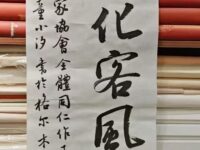 化客風
家協會全體同仁作
童小汐書於格尔木